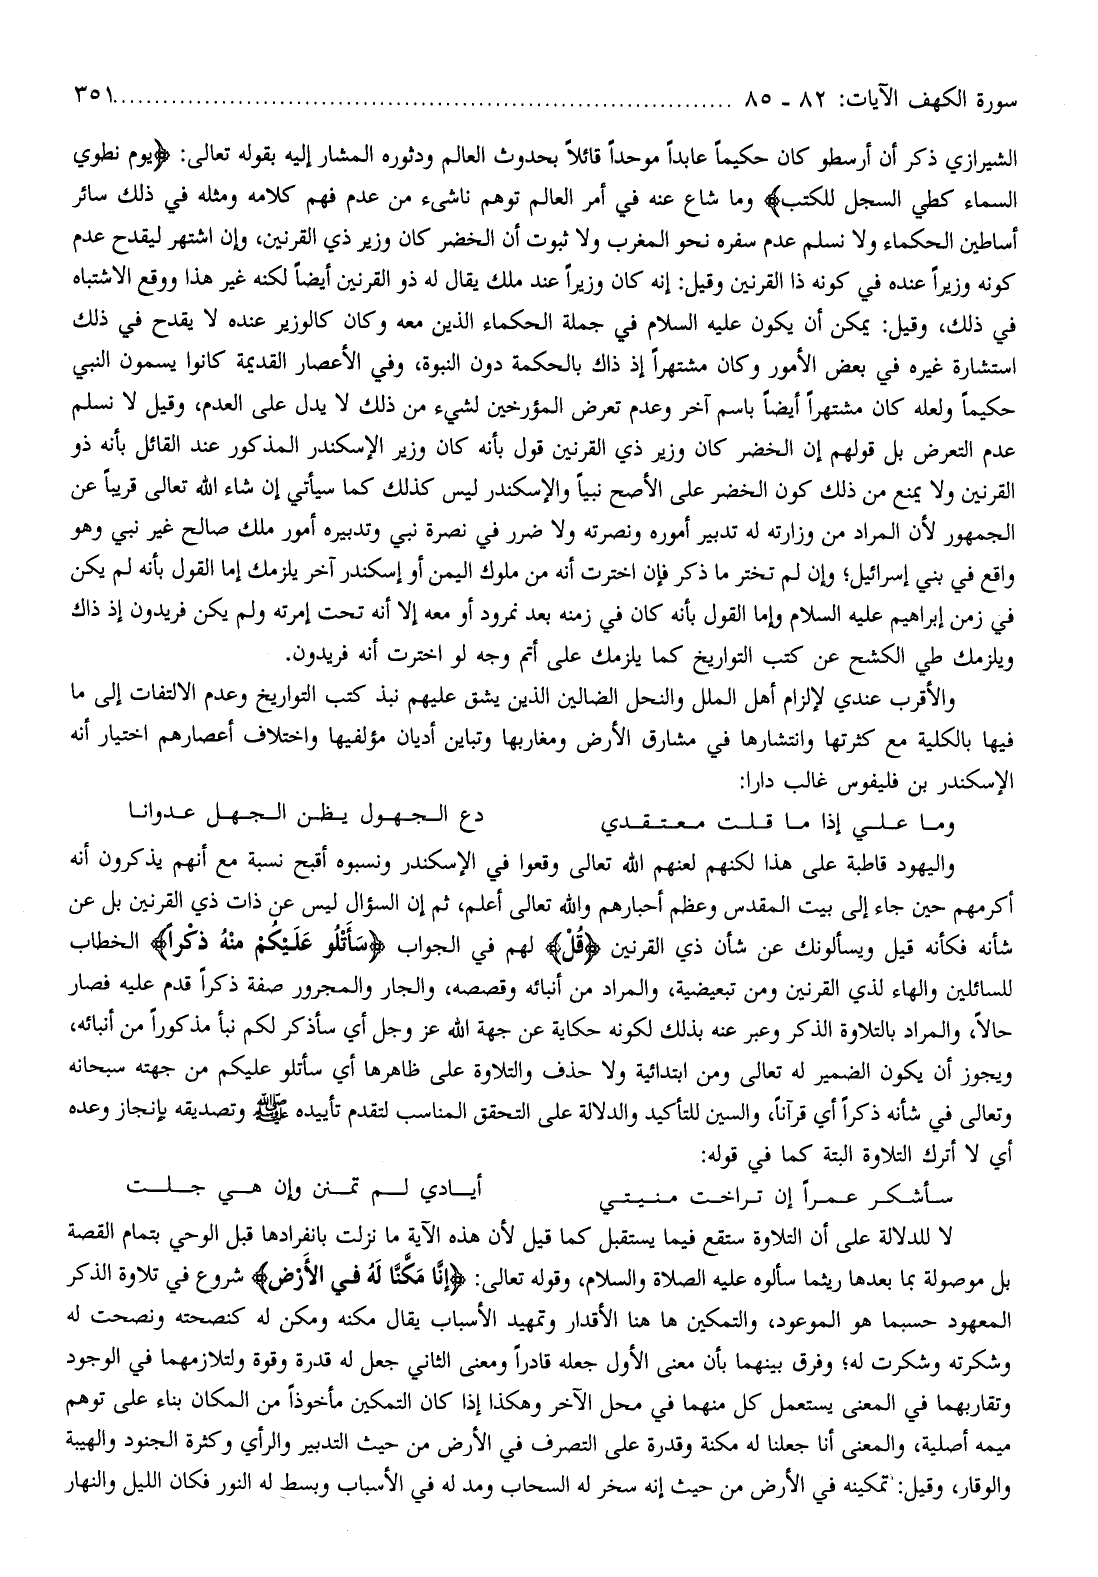 سورة الكهف الآيات: ٨٢ - ٨٥ ........................................................................... ٣٥١
الشيرازي ذكر أن أرسطو كان حكيماً عابداً موحداً قائلاً بحدوث العالم ودثوره المشار إليه بقوله تعالى: ﴿يوم نطوي
السماء كطي السجل للكتب﴾ وما شاع عنه في أمر العالم توهم ناشىء من عدم فهم كلامه ومثله في ذلك سائر
أساطين الحكماء ولا نسلم عدم سفره نحو المغرب ولا ثبوت أن الخضر كان وزير ذي القرنين، وإن اشتهر ليقدح عدم
كونه وزيراً عنده في كونه ذا القرنين وقيل: إنه كان وزيراً عند ملك يقال له ذو القرنين أيضاً لكنه غير هذا ووقع الاشتباه
في ذلك، وقيل: يمكن أن يكون عليه السلام في جملة الحكماء الذين معه وكان كالوزير عنده لا يقدح في ذلك
استشارة غيره في بعض الأمور وكان مشتهراً إذ ذاك بالحكمة دون النبوة، وفي الأعصار القديمة كانوا يسمون النبي
حكيماً ولعله كان مشتهراً أيضاً باسم آخر وعدم تعرض المؤرخين لشيء من ذلك لا يدل على العدم، وقيل لا نسلم
عدم التعرض بل قولهم إن الخضر كان وزير ذي القرنين قول بأنه كان وزير الإسكندر المذكور عند القائل بأنه ذو
القرنين ولا يمنع من ذلك كون الخضر على الأصح نبياً والإسكندر ليس كذلك كما سيأتي إن شاء الله تعالى قريباً عن
الجمهور لأن المراد من وزارته له تدبير أموره ونصرته ولا ضرر في نصرة نبي وتدبيره أمور ملك صالح غير نبي وهو
واقع في بني إسرائيل؛ وإن لم تختر ما ذكر فإن اخترت أنه من ملوك اليمن أو إسكندر آخر يلزمك إما القول بأنه لم يكن
في زمن إبراهيم عليه السلام وإما القول بأنه كان في زمنه بعد نمرود أو معه إلا أنه تحت إمرته ولم يكن فريدون إذ ذاك
ويلزمك طي الكشح عن كتب التواريخ كما يلزمك على أتم وجه لو اخترت أنه فريدون.
والأقرب عندي لإلزام أهل الملل والنحل الضالين الذين يشق عليهم نبذ كتب التواريخ وعدم الالتفات إلى ما
فيها بالكلية مع كثرتها وانتشارها في مشارق الأرض ومغاربها وتباين أديان مؤلفيها واختلاف أعصارهم اختيار أنه
الإسكندر بن فليفوس غالب دارا:
وما علي إذا ما قلت معتقدي دع الجهول يظن الجهل عدوانا
واليهود قاطبة على هذا لكنهم لعنهم الله تعالى وقعوا في الإسكندر ونسبوه أقبح نسبة مع أنهم يذكرون أنه
أكرمهم حين جاء إلى بيت المقدس وعظم أحبارهم والله تعالى أعلم، ثم إن السؤال ليس عن ذات ذي القرنين بل عن
شأنه فكأنه قيل ويسألونك عن شأن ذي القرنين ﴿قُلْ﴾ لهم في الجواب ﴿سَأَتْلُو عَلَيْكُمْ مِنْهُ ذِكْراً﴾ الخطاب
للسائلين والهاء لذي القرنين ومن تبعيضية، والمراد من أنبائه وقصصه، والجار والمجرور صفة ذكراً قدم عليه فصار
حالاً، والمراد بالتلاوة الذكر وعبر عنه بذلك لكونه حكاية عن جهة الله عز وجل أي سأذكر لكم نبأ مذكوراً من أنبائه،
ويجوز أن يكون الضمير له تعالى ومن ابتدائية ولا حذف والتلاوة على ظاهرها أي سأتلو عليكم من جهته سبحانه
وتعالى في شأنه ذكراً أي قرآناً، والسين للتأكيد والدلالة على التحقق المناسب لتقدم تأييده ﷺ وتصديقه بإنجاز وعده
أي لا أترك التلاوة البتة كما في قوله:
سأشكر عمراً إن تراخت منيتي أيادي لم تمنن وإن هي جلت
لا للدلالة على أن التلاوة ستقع فيما يستقبل كما قيل لأن هذه الآية ما نزلت بانفرادها قبل الوحي بتمام القصة
بل موصولة بما بعدها ريثما سألوه عليه الصلاة والسلام، وقوله تعالى: ﴿إِنَّا مَكَّنَّا لَهُ فِي الأَرْضِ﴾ شروع في تلاوة الذكر
المعهود حسبما هو الموعود، والتمكين ها هنا الأقدار وتمهيد الأسباب يقال مكنه ومكن له كنصحته ونصحت له
وشكرته وشكرت له؛ وفرق بينهما بأن معنى الأول جعله قادراً ومعنى الثاني جعل له قدرة وقوة ولتلازمهما في الوجود
وتقاربهما في المعنى يستعمل كل منهما في محل الآخر وهكذا إذا كان التمكين مأخوذاً من المكان بناء على توهم
ميمه أصلية، والمعنى أنا جعلنا له مكنة وقدرة على التصرف في الأرض من حيث التدبير والرأي وكثرة الجنود والهيبة
والوقار، وقيل: تمكينه في الأرض من حيث إنه سخر له السحاب ومد له في الأسباب وبسط له النور فكان الليل والنهار